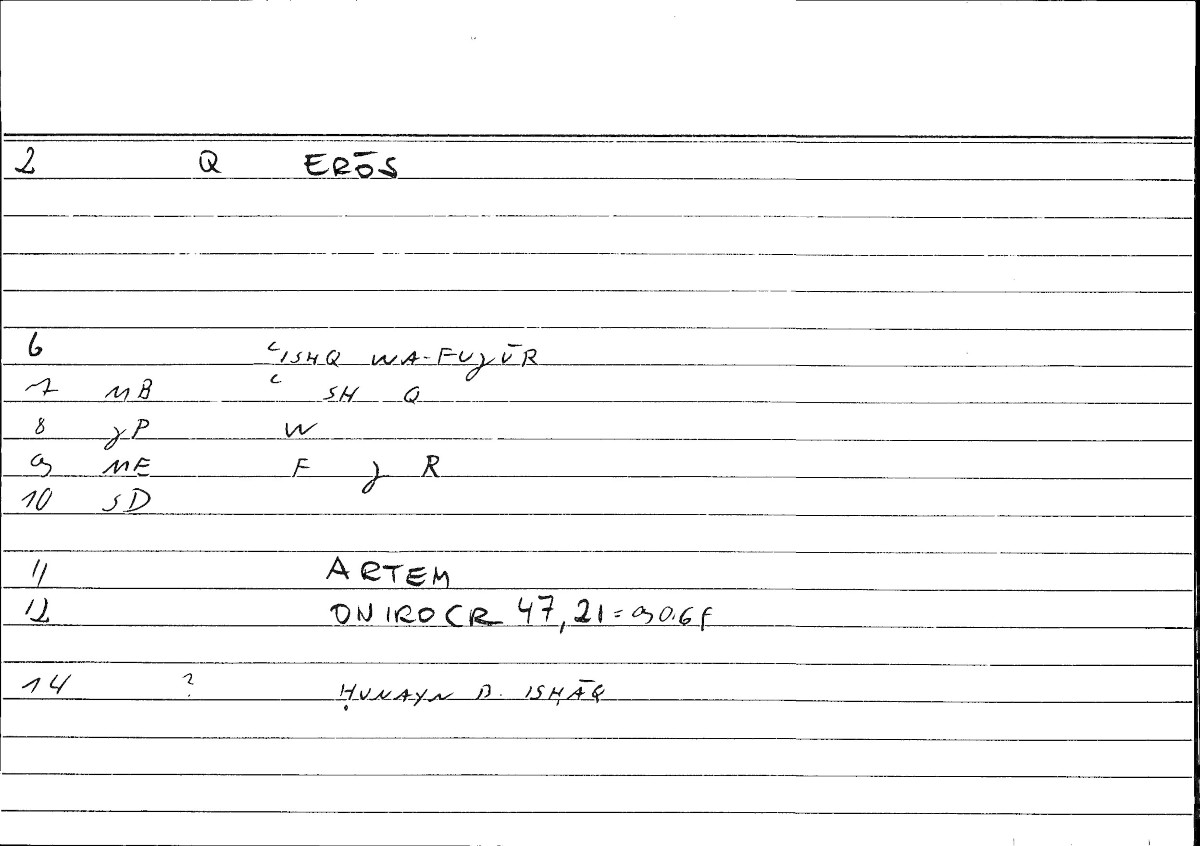 2 Q ERŌS
6 ʿISHQ WA-FUJŪR
7 MB ʿ SH Q
8 JP W
9 ME F J R
10 SD
11 ARTEM
12 ONIROCR 47,21 = 90.6 f
14 ? ḤUNAYN B. ISḤĀQ